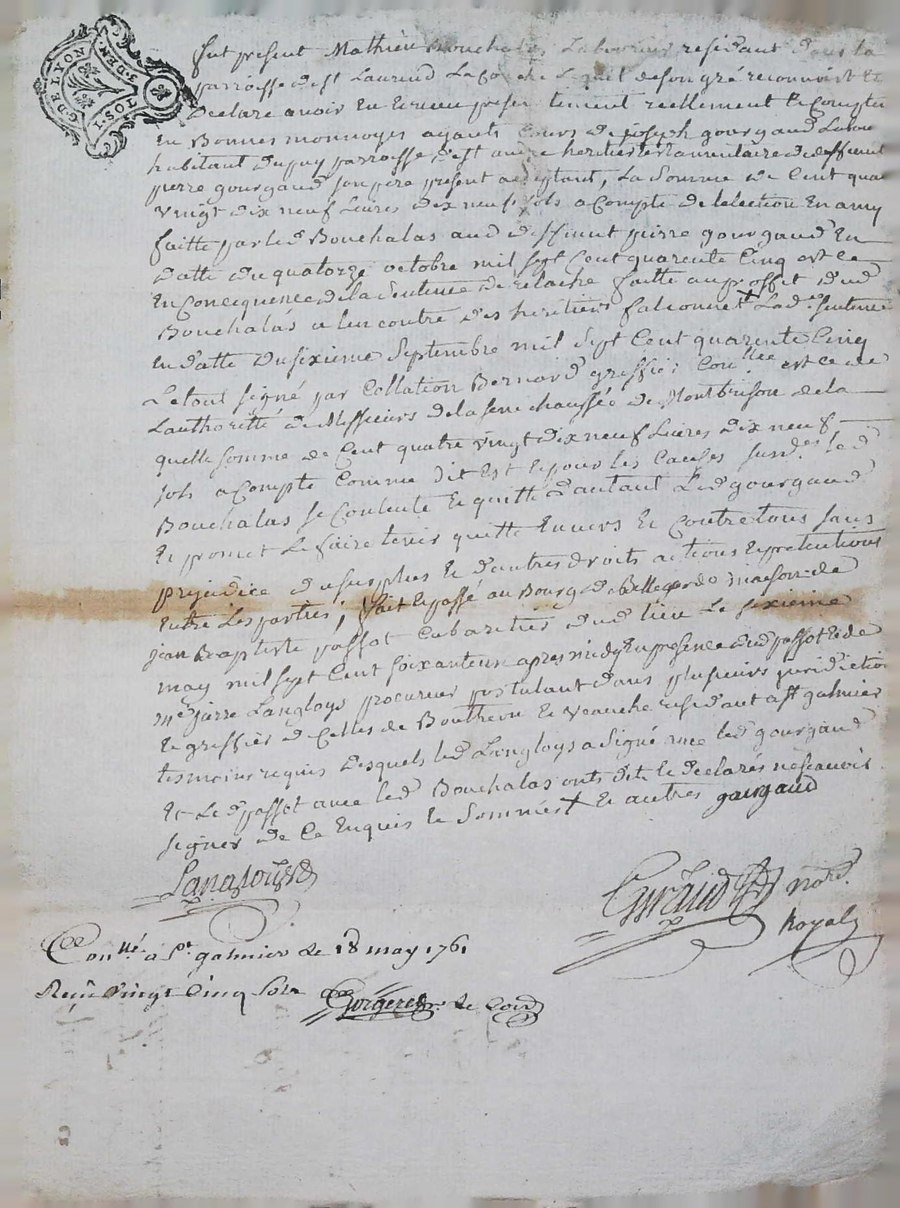 G. DE LYON
1. SOL 3. DEN.
fut present Mathieu Bouchalas Laboureur residant dans la
parroisse de st Laurend La Conche Lequel de son gré reconnoist et
Declare avoir Eu et receu presentement reellement et Comptan
En Bonnes monnoyes ayants Cours de joseph gourgaud Labou
habitant du puy parroisse de st andre heritier testamentaire de deffunt
pierre gourgaud son pere present acceptant, La Somme de Cent qua
vingt dix neuf Livres dix neuf sols a Compte de Lelection En amy
faitte par led Bouchalas aud deffunt pierre gourgaud En
datte du quatorze octobre mil sept Cent quarente Cinq est ce
En Concequence de la Sentence de relache faitte au proffit dud
Bouchalas a lencontre des heritiers falconnet + Lad. sentence
En datte du sixieme Septembre mil sept Cent quarente Cinq
Le tout signé par Collation Bernard greffier Con.llee est ce de
Lauthorité de Messieurs de la senechaussée de Montbrison de la
quelle somme de Cent quatre vingt dix neuf Livres dix neuf
sols a Compte Comme dit Est et pour les Causes susd. led
Bouchalas se Contente et quitte d'autant Led gourgaud
Et promet Le faire tenir quitte Envers et Contre tous sans
prejudice du surplus et d'autres droits actions et pretentions
Entre Les parties; fait et passé au Bourg de Bellegarde maison de
jean Baptiste passot Cabaretier dud lieu Le sixieme
may mil sept Cent soixante un apres midy En presence dud passot et de
me pierre Langloys procureur postulant dans plusieurs juridictions
Et greffier de Celles de Bouthéon et Veauche residant a st galmier
tesmoins requis Desquels led Langloys a signé avec led gourgaud
Et Led passot avec led Bouchalas onts dit et declarés ne scavoir
signer de Ce Enquis et Sommés + Et autres gourgaud
Langloys
Guraud nore.
Royal
Conllé a St galmier le 18 may 1761
Reçû vingt Cinq sols